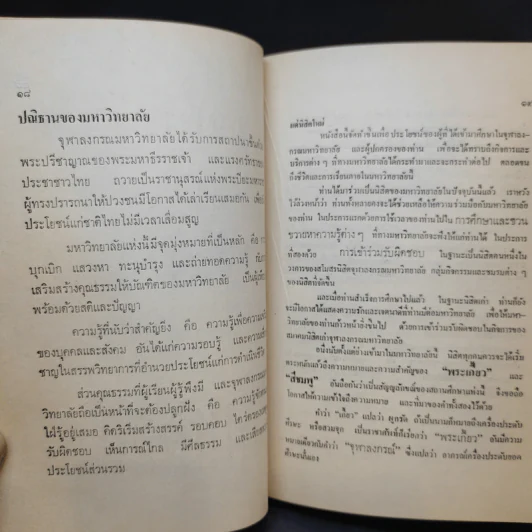 ๑๘
ปณิธานของมหาวิทยาลัย
จุฬาลงกรณมหาวิทยาลัยได้รับการสถาปนาขึ้นด้วย
พระปรีชาญาณของพระมหาธีรราชเจ้า และแรงศรัทธา
ประชาชาวไทย ถวายเป็นราชานุสรณ์แห่งพระปิยะมหา
ผู้ทรงปรารถนาให้ปวงชนมีโอกาสได้เล่าเรียนเสมอกัน เพื่อ
ประโยชน์แก่ชาติไทยไม่มีเวลาเสื่อมสูญ
มหาวิทยาลัยแห่งนี้มีจุดมุ่งหมายที่เป็นหลัก คือ
บุกเบิก แสวงหา ทะนุบำรุง และถ่ายทอดความรู้
เสริมสร้างคุณธรรมให้บัณฑิตของมหาวิทยาลัย เป็นผู้เพียบ
พร้อมด้วยสติและปัญญา
ความรู้ที่นับว่าสำคัญยิ่ง คือ ความรู้เพื่อความ
ของบุคคลและสังคม อันได้แก่ความรอบรู้ และความ
ชาญในสรรพวิทยาการที่อำนวยประโยชน์แก่การดำเนินชีวิต
ส่วนคุณธรรมที่ผู้เรียนผู้รู้พึงมี และจุฬาลงกรณ
วิทยาลัยถือเป็นหน้าที่จะต้องปลูกฝัง คือ ความรู้จัก
ใฝ่รู้อยู่เสมอ คิดริเริ่มสร้างสรรค์ รอบคอบ ไตร่ตรอง
รับผิดชอบ เห็นการณ์ไกล มีศีลธรรม และเสียสละ
ประโยชน์ส่วนรวม
แด่นิสิตใหม่
หนังสือนี้จัดทำขึ้นเพื่อประโยชน์ของผู้ที่ได้เข้ามาศึกษาในจุฬาลง-
กรณมหาวิทยาลัย และผู้ปกครองของท่าน เพื่อจะได้ทราบถึงกิจการและ
บริการต่าง ๆ ที่ทางมหาวิทยาลัยได้กระทำมาและจะกระทำต่อไป ตลอดจน
ถึงชีวิตและการเรียนภายในมหาวิทยาลัยนี้
ท่านได้มาร่วมเป็นนิสิตของมหาวิทยาลัยในปัจจุบันนี้แล้ว เราหวัง
ไว้ล่วงหน้าว่า ท่านทั้งหลายคงจะได้ช่วยเหลือให้ความร่วมมือกับมหาวิทยาลัยของ
ท่าน ในประการแรกด้วยการใช้เวลาของท่านไปใน การศึกษาและชวน
ขวายหาความรู้ต่าง ๆ ที่ทางมหาวิทยาลัยจะพึงให้แก่ท่านได้ ในประการ
ที่สองด้วย การเข้าร่วมรับผิดชอบ ในฐานะเป็นนิสิตคนหนึ่งใน
วงการของสโมสรนิสิตจุฬาลงกรณมหาวิทยาลัย กลุ่มกิจกรรมและชมรมต่าง ๆ
ของนิสิตที่จัดขึ้น
และเมื่อท่านสำเร็จการศึกษาไปแล้ว ในฐานะนิสิตเก่า ท่านก็ยัง
จะมีโอกาสได้แสดงความรักและเจตนาดีที่ท่านมีต่อมหาวิทยาลัย เพื่อให้มหา-
วิทยาลัยของท่านก้าวหน้ายิ่งขึ้นไป ด้วยการเข้าร่วมรับผิดชอบในกิจการของ
สมาคมนิสิตเก่าจุฬาลงกรณมหาวิทยาลัย
อนึ่งนับตั้งแต่ย่างเข้ามาในมหาวิทยาลัยนี้ นิสิตทุกคนควรจะได้เริ่ม
ตระหนักแล้วถึงความหมายและความสำคัญของ "พระเกี้ยว" และ
"สีชมพู" อันถือกันว่าเป็นสัญลักษณ์ของสถานศึกษาแห่งนี้ จึงขอถือ
โอกาสให้ความเข้าใจถึงความหมาย และที่มาของคำทั้งสองไว้ด้วย
คำว่า "เกี้ยว" แปลว่า ผูกรัด ถ้าเป็นนามก็หมายถึงเครื่องประดับ
ศีรษะ หรือสวมจุก เป็นราชาศัพท์ก็เรียกว่า "พระเกี้ยว" อันมีความ
หมายเดียวกับคำว่า "จุฬาลงกรณ์" ซึ่งแปลว่า อาภรณ์เครื่องประดับยอด
ศีรษะนั่นเอง